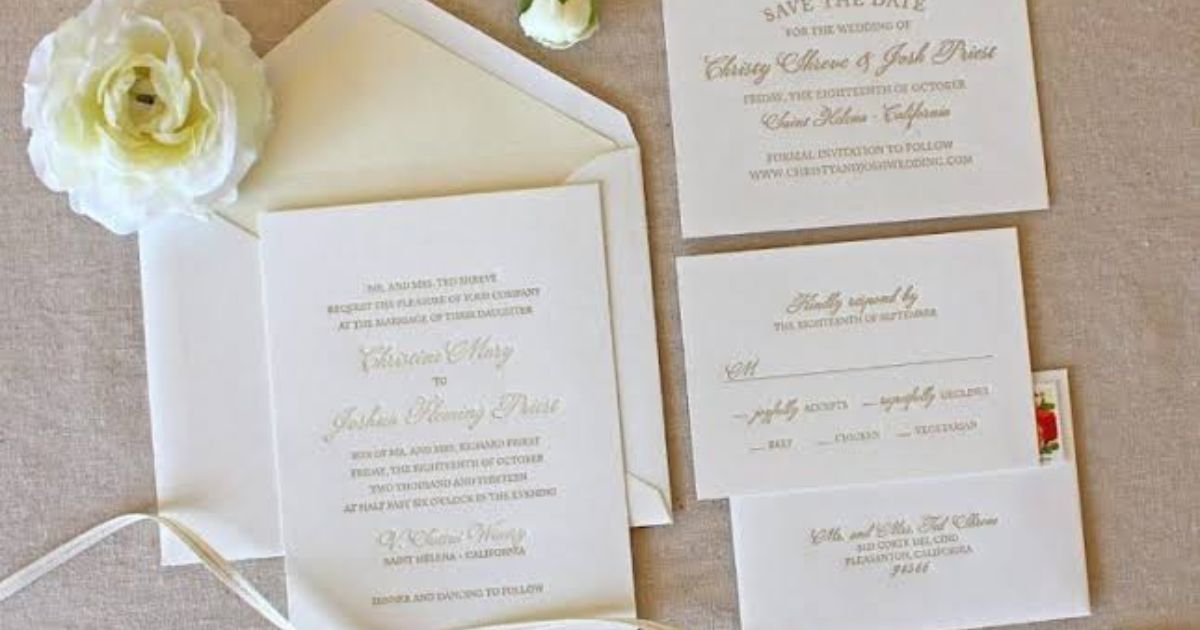 MR. AND MRS. TED SHREVE
REQUEST THE PLEASURE OF YOUR COMPANY
AT THE MARRIAGE OF THEIR DAUGHTER
Christine Mary
TO
Joshua Fleming Priest
SON OF MR. AND MRS. RICHARD PRIEST
FRIDAY, THE EIGHTEENTH OF OCTOBER
TWO THOUSAND AND THIRTEEN
AT HALF PAST SIX O'CLOCK IN THE EVENING
V. Sattui Winery
SAINT HELENA - CALIFORNIA
DINNER AND DANCING TO FOLLOW
SAVE THE DATE
FOR THE WEDDING OF
Christy Shreve & Josh Priest
FRIDAY, THE EIGHTEENTH OF OCTOBER
Saint Helena - California
FORMAL INVITATION TO FOLLOW
WWW.CHRISTYANDJOSHWEDDING.COM
Kindly respond by
THE EIGHTEENTH OF SEPTEMBER
M
joyfully ACCEPTS regretfully DECLINES
BEEF CHICKEN VEGETARIAN
Mr. and Mrs. Ted Shreve
CORTE DEL CINO
PLEASANTON, CALIFORNIA
94566